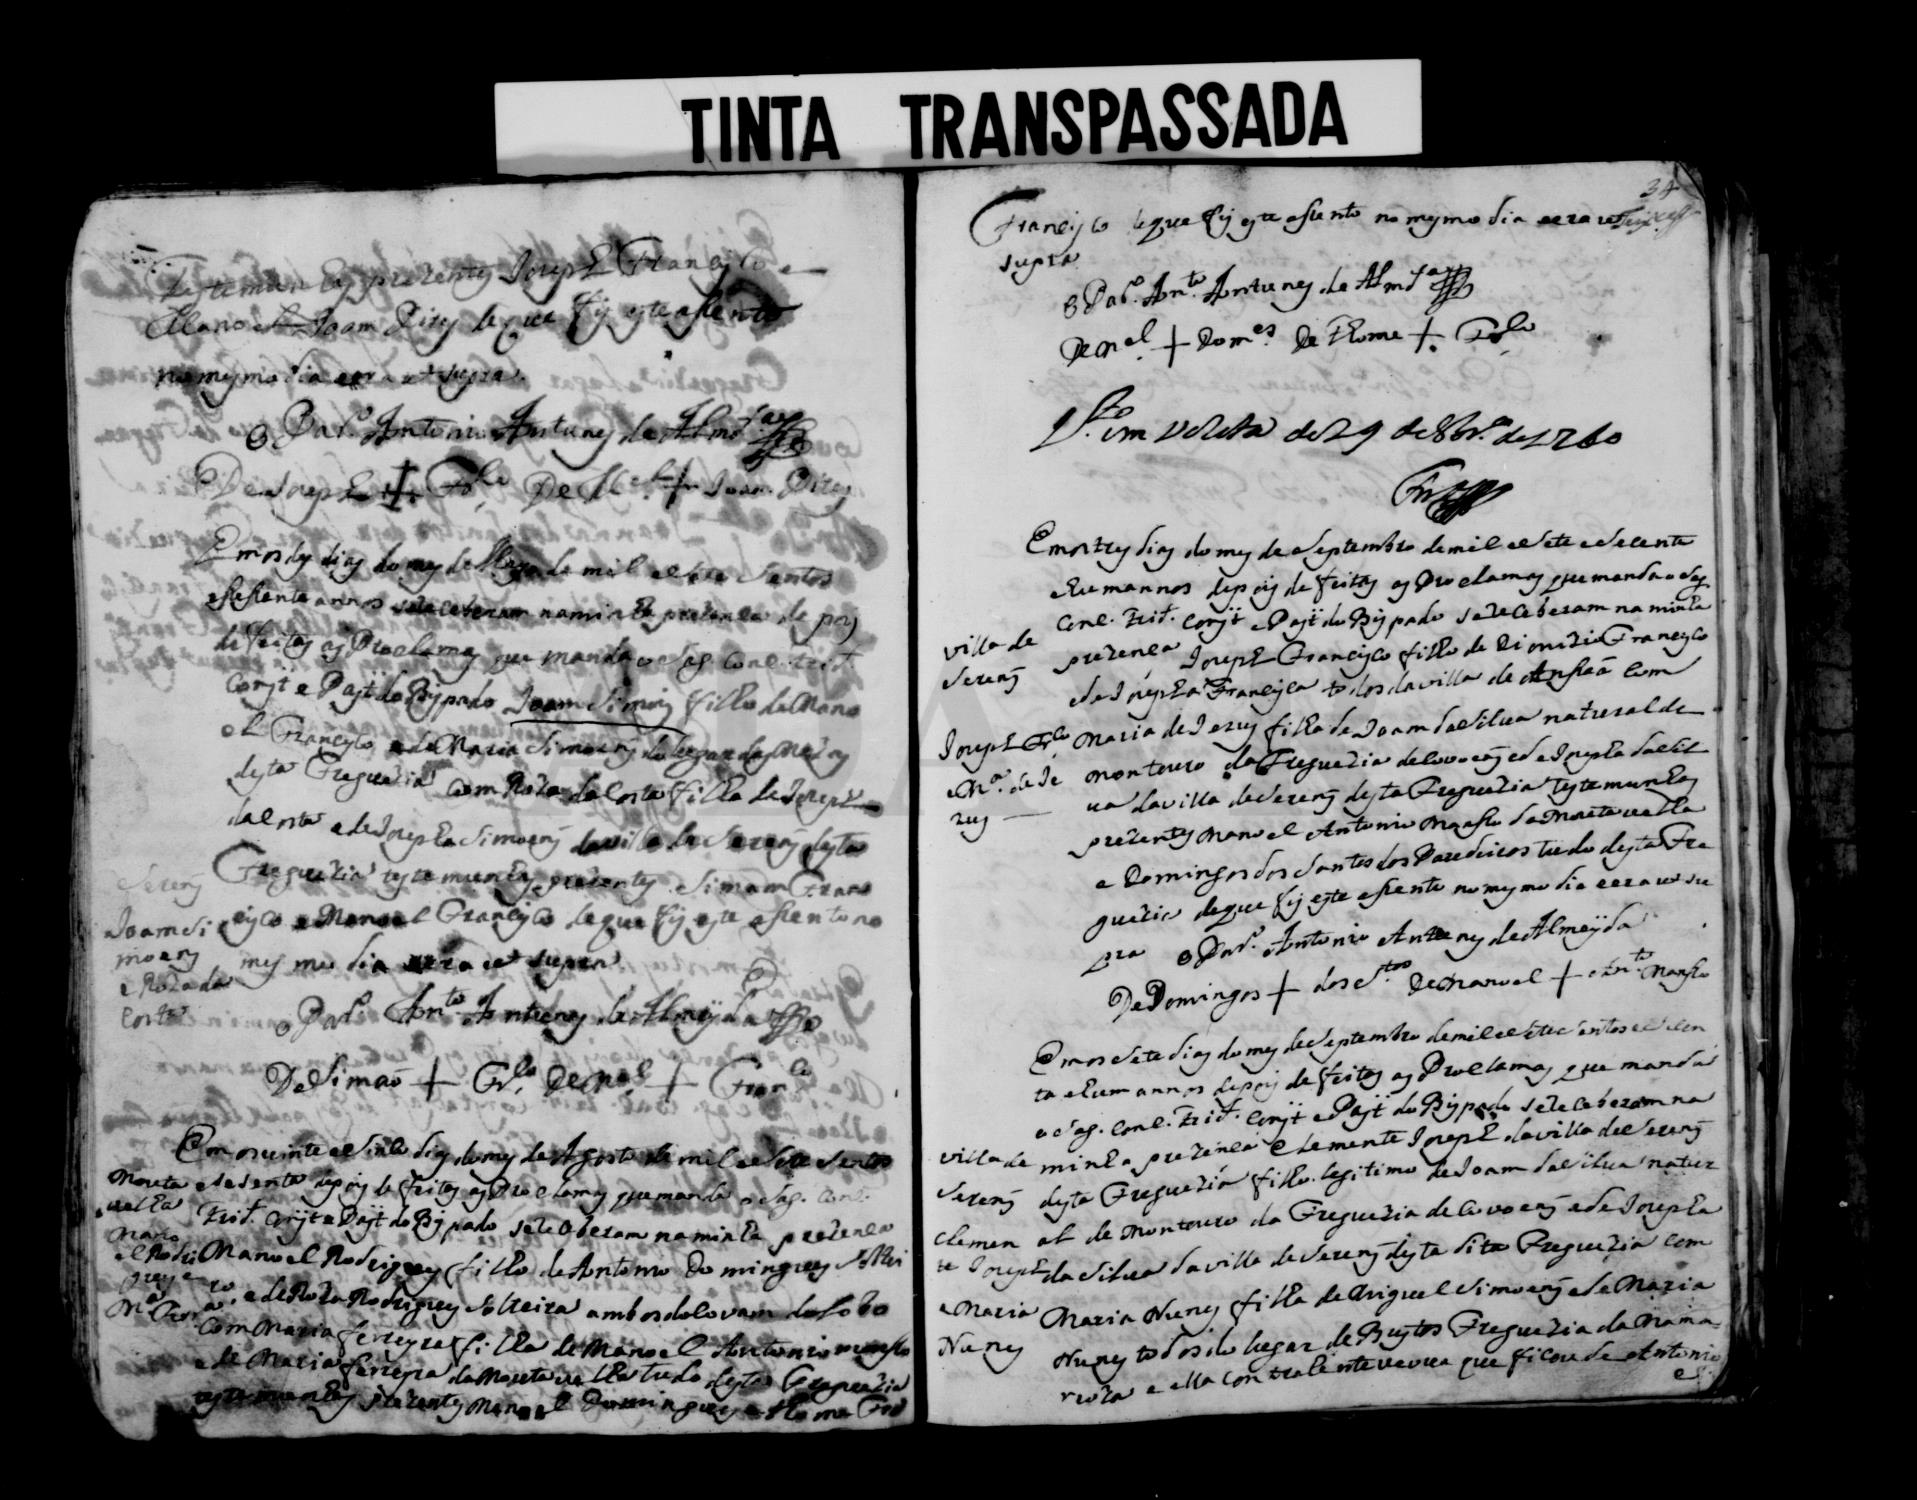 TINTA TRANSPASSADA
Testemunhas prezentes Joseph Francisco e
Manoel Joam Pirez de que fis este asento
no mesmo dia e era ut supra
O Pad.e Antonio Antunes de Almd.a
De Joseph + Fr.co De M.el + Joam Pirez
Em os des dias do mes de Mayo de mil e sete sentos
e sesenta annos se receberam na minha prezença de pois
de feitas as Proclamas que manda o Sag. Conc. Trid.
Const. e Past. do Bispado Joam Simois filho de Mano
el Francisco e de Maria Simoens do lugar das
desta Freguezia com Roza da Costa filha de Joseph
da Costa e de Josepha Simoens da villa de Serens desta
Freguezia testemunhas prezentes Simam Fran
cisco e Manoel Francisco de que fis este asento no
mesmo dia e era ut supra
Serens
Joam Si
moens
e Roza da
Costa
O Pad.e Ant.o Antunes de Almeyda
De Simaõ + Fr.co De M.el + Fran.co
Em os vinte e sinco dias do mes de Agosto de mil e sete sentos
e sesenta depois de feitas as Proclamas que manda o Sag. Conc.
Trid. Const. e Past. do Bispado se receberam na minha prezença
Manoel Rodrigues filho de Antonio Domingues Soltei
ro, e de Roza Rodrigues Solteira ambos do Lovam do Lobo
com Maria ferreyra filha de Manoel Antonio manso
e de Maria ferreyra da Moreta velha tudo desta Freguezia
testemunhas prezentes Manoel Domingues e Thome Fran
Moreta
velha
Mano
el Rodri
gues e
M.a Ferr.a
34
Francisco de que fis este asento no mesmo dia e era ut
supra
O Pad.e Ant.o Antunes de Almd.a
De M.el + Dom.es De Thome + Fr.co
V.to em vezita de 29 de 8br.o de 1760
Em os tres dias do mes de Septembro de mil e sete e secenta
e hum annos depois de feitas as Proclamas que manda o Sag.
Conc. Trid. Const. e Past. do Bispado se receberam na minha
prezença Joseph Francisco filho de Dionizio Francisco
e de Josepha Francisca todos da villa de Anseã com
Maria de Jezus filha de Joam da Silva natural de
Montouro da Freguezia de Covoens e de Josepha da Sil
va da villa de Serens desta Freguezia testemunhas
prezentes Manoel Antonio Manso da Moreta velha
e Domingos dos Santos dos Paredeiros tudo desta Fre
guezia de que fis este asento no mesmo dia e era ut su
pra O Pad.e Antonio Antunes de Almeyda
De Domingos + dos S.tos De Manoel + Ant.o Manso
villa de
Serens
Joseph Fr.co
e M.a de Je
zus
Em os sete dias do mes de Septembro de mil e sete sentos e secen
ta e hum annos depois de feitas as Proclamas que manda
o Sag. Conc. Trid. Const. e Past. do Bispado se receberam na
minha prezença Clemente Joseph da villa de Serens
desta Freguezia filho legitimo de Joam da Silva natur
al de Montouro da Freguezia de Covoens e de Josepha
da Silva da villa de Serens desta dita Freguezia com
Maria Nunes filha de Miguel Simoens e de Maria
Nunes todos do lugar de Bustos Freguezia da Mama
roza e ella contraente veuva que ficou de Antonio
villa de
Serens
Clemen
te Joseph
e Maria
Nunes